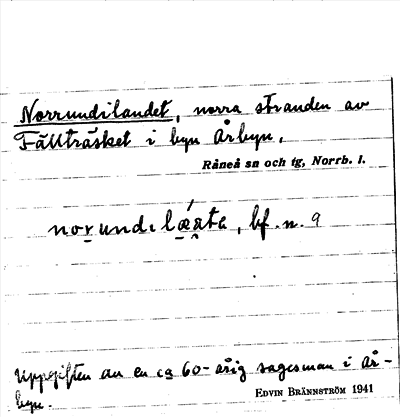 Norrundilandet, norra stranden av
Fällträsket i byn Årbyn.
Råneå sn och tg, Norrb. l.
norundılǽata, bf. n. 9
Uppgiften av en ca 60-årig sagesman i År-
byn.
EDVIN BRÄNNSTRÖM 1941